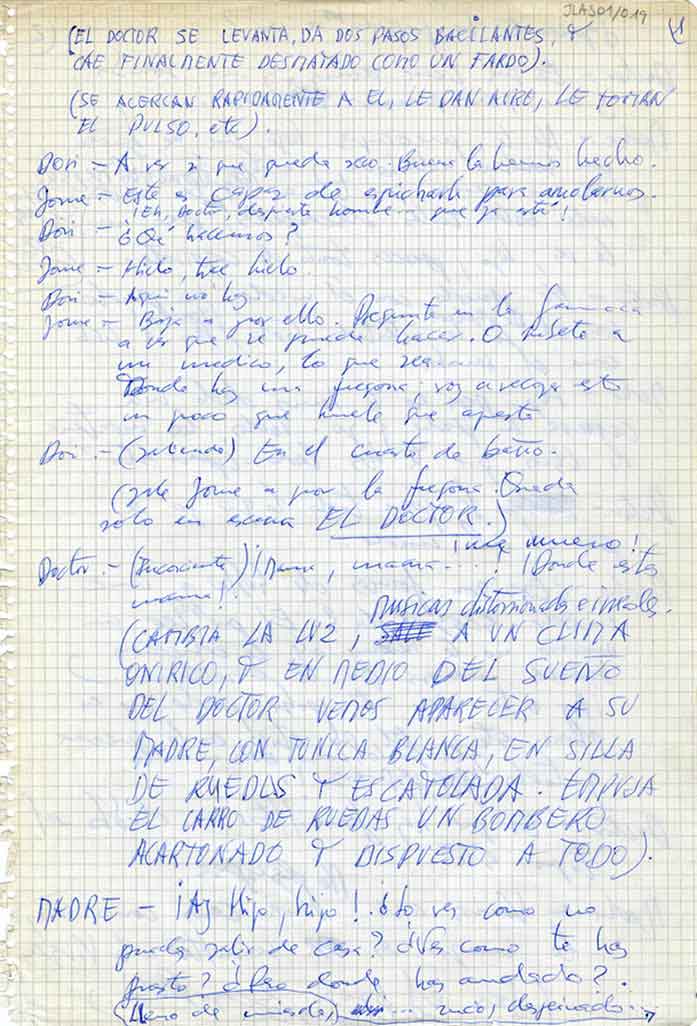 JLAS01/019
(EL DOCTOR SE LEVANTA, DA DOS PASOS BACILANTES, Y
CAE FINALMENTE DESMAYADO COMO UN FARDO).
(SE ACERCAN RAPIDAMENTE A EL, LE DAN AIRE, LE TOMAN
EL PULSO, etc).
Dori - A ver si que queda seco. Buena la hemos hecho.
Jome - Este es capaz de espicharla para amolarnos.
¡Eh, Doctor, despierte hombre que ya está!
Dori - ¿Qué hacemos?
Jome - Hielo, trae hielo
Dori - Aquí no hay.
Jome - Baja a por ello. Pregunta en la farmacia
a ver que se puede hacer. O súbete a
un médico, lo que sea
Donde hay una fregona; voy a recoger esto
un poco que huele que apesta
Dori - (saliendo) En el cuarto de baño.
(sale Jome a por la fregona. Queda
solo en escena EL DOCTOR.)
¡me muero!
Doctor - (Inconsciente) ¡Mama, mama....! ¡Donde estas
mama!
musicas distorsionadas
(CAMBIA LA LUZ, A UN CLIMA
ONIRICO, Y EN MEDIO DEL SUEÑO
DEL DOCTOR VEMOS APARECER A SU
MADRE, CON TUNICA BLANCA, EN SILLA
DE RUEDAS Y ESCAYOLADA. EMPUJA
EL CARRO DE RUEDAS UN BOMBERO
ACARTONADO Y DISPUESTO A TODO).
MADRE - ¡Ay Hijo, hijo! ¿Lo ves como no
puedes salir de casa? ¿Ves como te has
puesto? ¿Pero donde has andado?.
(lleno de mierda, sucio, despeinado...